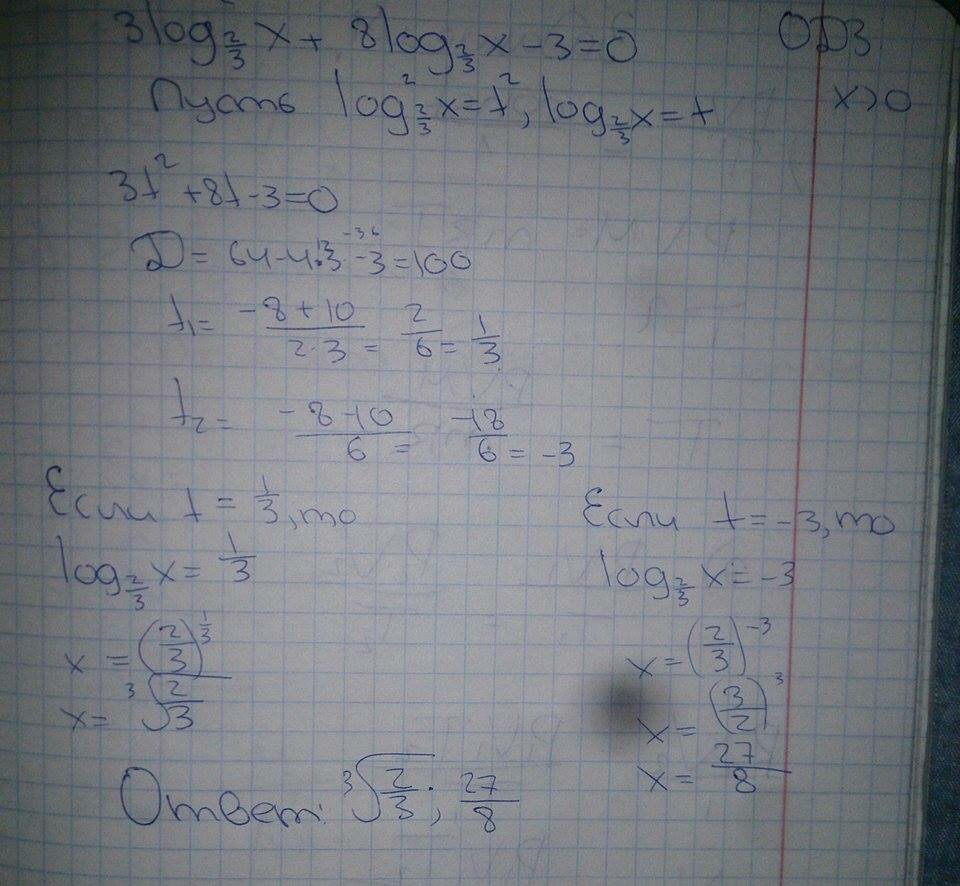 3log_{2/3} x + 8log_{2/3} x - 3 = 0 ОДЗ
Пусть log²_{2/3} x = t², log_{2/3} x = t x > 0
3t² + 8t - 3 = 0
D = 64 - 4·3·-3 = 100
-36
t₁ = (-8 + 10)/(2·3) = 2/6 = 1/3
t₂ = (-8 - 10)/6 = -18/6 = -3
Если t = 1/3, то
log_{2/3} x = 1/3
x = (2/3)^{1/3}
x = ∛(2/3)
Если t = -3, то
log_{2/3} x = -3
x = (2/3)^{-3}
x = (3/2)³
x = 27/8
Ответ: ∛(2/3); 27/8